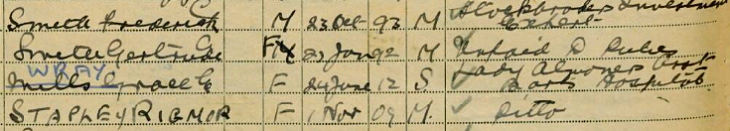 Smith Frederick M 23 Oct 93 M Stockbrokers Investment Expert
Smith Gertrude G F 27 Jan 92 M Unpaid D Duties
WRAY
Mills Grace G F 24 June 12 S Lady Almoners Asst Barts Hospital
STAPLEY RIGMOR F 1 Nov 09 M. Ditto